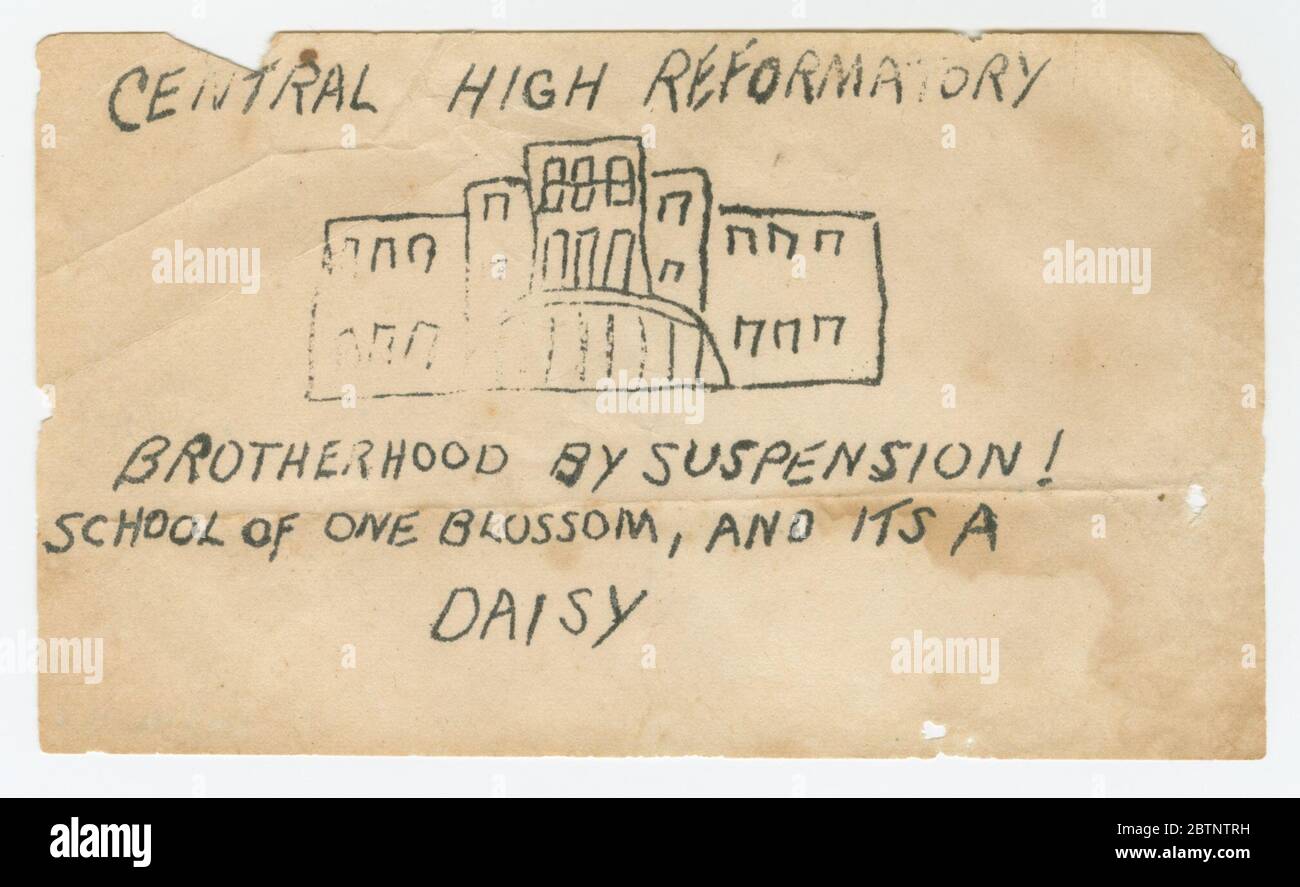 CENTRAL HIGH REFORMATORY
BROTHERHOOD BY SUSPENSION!
SCHOOL OF ONE BLOSSOM, AND ITS A
DAISY
a alamy
alamy
Image ID: 2BTNTRH
www.alamy.com